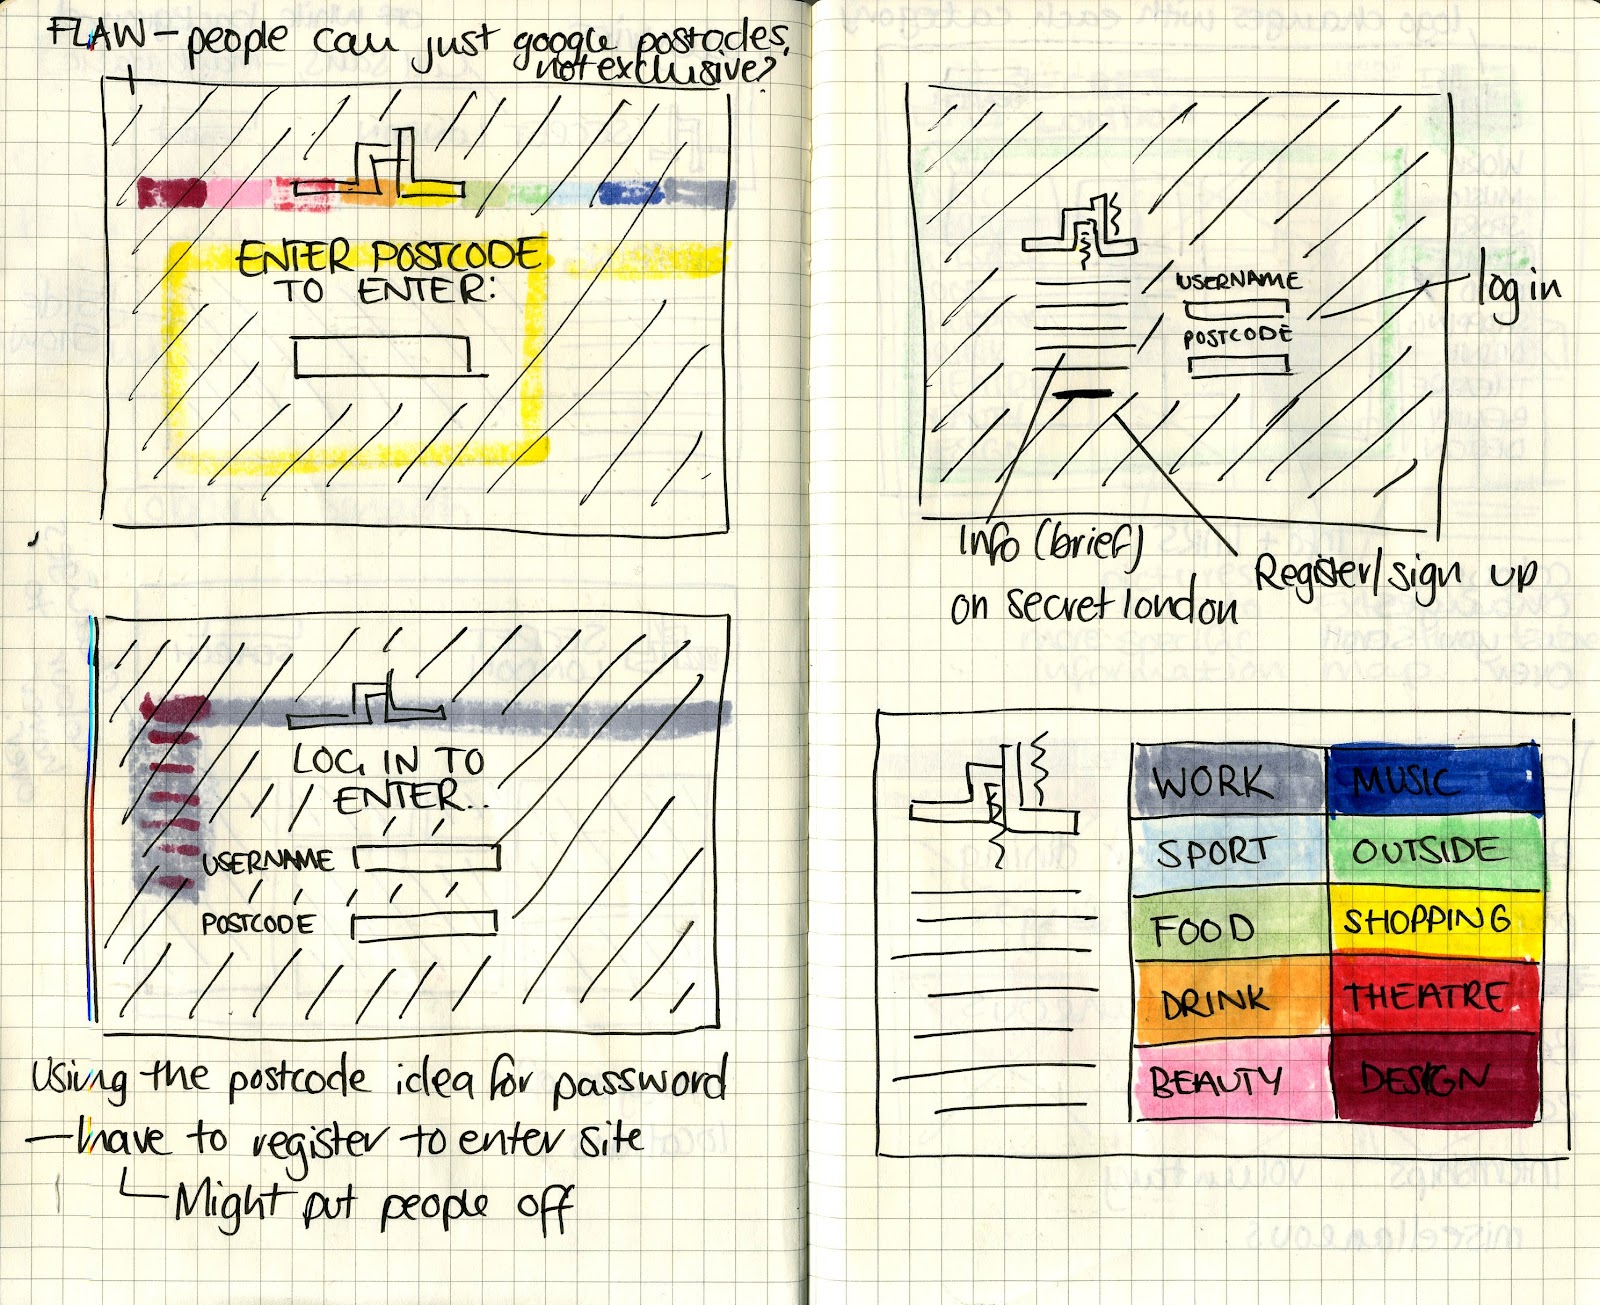 FLAW - people can just google postcodes,
not exclusive?
ENTER POSTCODE
TO ENTER:
LOG IN TO
ENTER..
USERNAME
POSTCODE
Using the postcode idea for password
- have to register to enter site
Might put people off
USERNAME
POSTCODE
log in
Info (brief)
on secret london
Register/sign up
WORK
MUSIC
SPORT
OUTSIDE
FOOD
SHOPPING
DRINK
THEATRE
BEAUTY
DESIGN